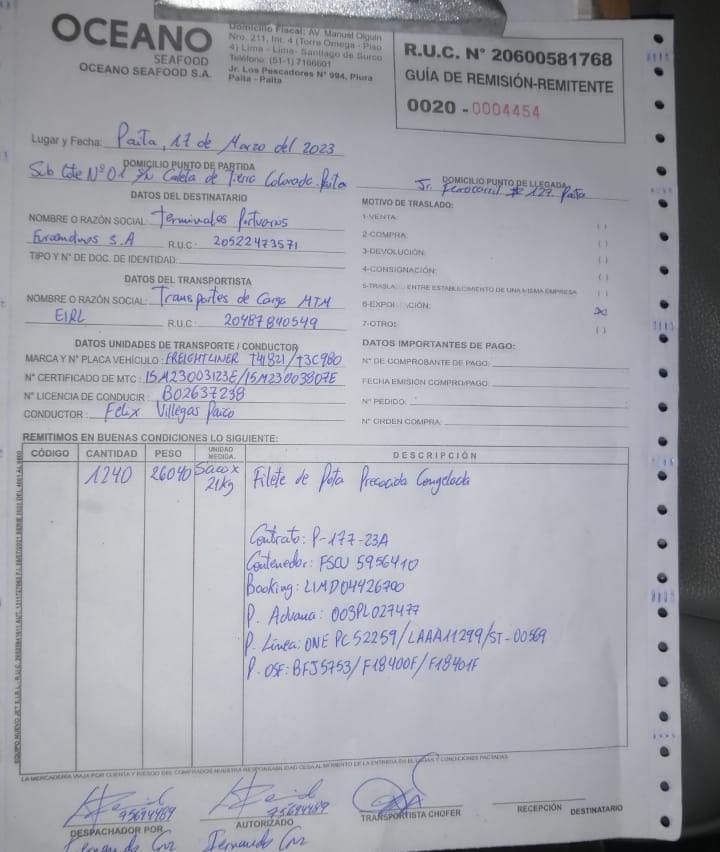 OCEANO
SEAFOOD
OCEANO SEAFOOD S.A.
Domicilio Fiscal: AV. Manuel Olguin
Nro. 211, Int. 4 (Torre Omega - Piso
4) Lima - Lima- Santiago de Surco
Teléfono: (51-1) 7166601
Jr. Los Pescadores N° 994, Piura
Paita - Paita
R.U.C. N° 20600581768
GUÍA DE REMISIÓN-REMITENTE
0020 - 0004454
Lugar y Fecha: Paita, 17 de Marzo del 2023
DOMICILIO PUNTO DE PARTIDA
Sub Lote N°01 S/N Caleta de Tierra Colorada Paita
DOMICILIO PUNTO DE LLEGADA
Jr. Ferrocarril # 127 Paita
DATOS DEL DESTINATARIO
NOMBRE O RAZÓN SOCIAL: Terminales Portuarios
Euroandinos S.A R.U.C: 20522473571
TIPO Y N° DE DOC. DE IDENTIDAD:
MOTIVO DE TRASLADO:
1-VENTA: ( )
2-COMPRA: ( )
3-DEVOLUCIÓN: ( )
4-CONSIGNACIÓN: ( )
5-TRASLADO ENTRE ESTABLECIMIENTO DE UNA MISMA EMPRESA ( )
6-EXPORTACIÓN: (X)
7-OTRO: ( )
DATOS DEL TRANSPORTISTA
NOMBRE O RAZÓN SOCIAL: Transportes de Carga MTM
EIRL R.U.C: 20487840549
DATOS UNIDADES DE TRANSPORTE / CONDUCTOR
MARCA Y N° PLACA VEHÍCULO: FREIGHTLINER T4I821/T3C980
N° CERTIFICADO DE MTC: 15M23003123E/15M23003807E
N° LICENCIA DE CONDUCIR: B02637238
CONDUCTOR: Felix Villegas Paico
DATOS IMPORTANTES DE PAGO:
N° DE COMPROBANTE DE PAGO:
FECHA EMISIÓN COMPRO/PAGO:
N° PEDIDO:
N° ORDEN COMPRA:
REMITIMOS EN BUENAS CONDICIONES LO SIGUIENTE:
CÓDIGO CANTIDAD PESO UNIDAD MEDIDA. DESCRIPCIÓN
1240 26040 Saco x 21Kg Filete de Pota Precocida Congelada
Contrato: P-177-23A
Contenedor: FSCU 5956410
Booking: LIMD04426700
P. Aduana: 003PL027477
P. Línea: ONE PC 52259/LAAA11299/ST-00569
P. OSF: BFJ5753/F18400F/F18401F
LA MERCADERÍA VIAJA POR CUENTA Y RIESGO DEL COMPRADOR NUESTRA RESPONSABILIDAD CESA AL MOMENTO DE LA ENTREGA EN EL LUGAR Y CONDICIONES PACTADAS
75694489
DESPACHADOR POR
Fernando Cruz
75694489
AUTORIZADO
Fernando Cruz
TRANSPORTISTA CHOFER
RECEPCIÓN DESTINATARIO